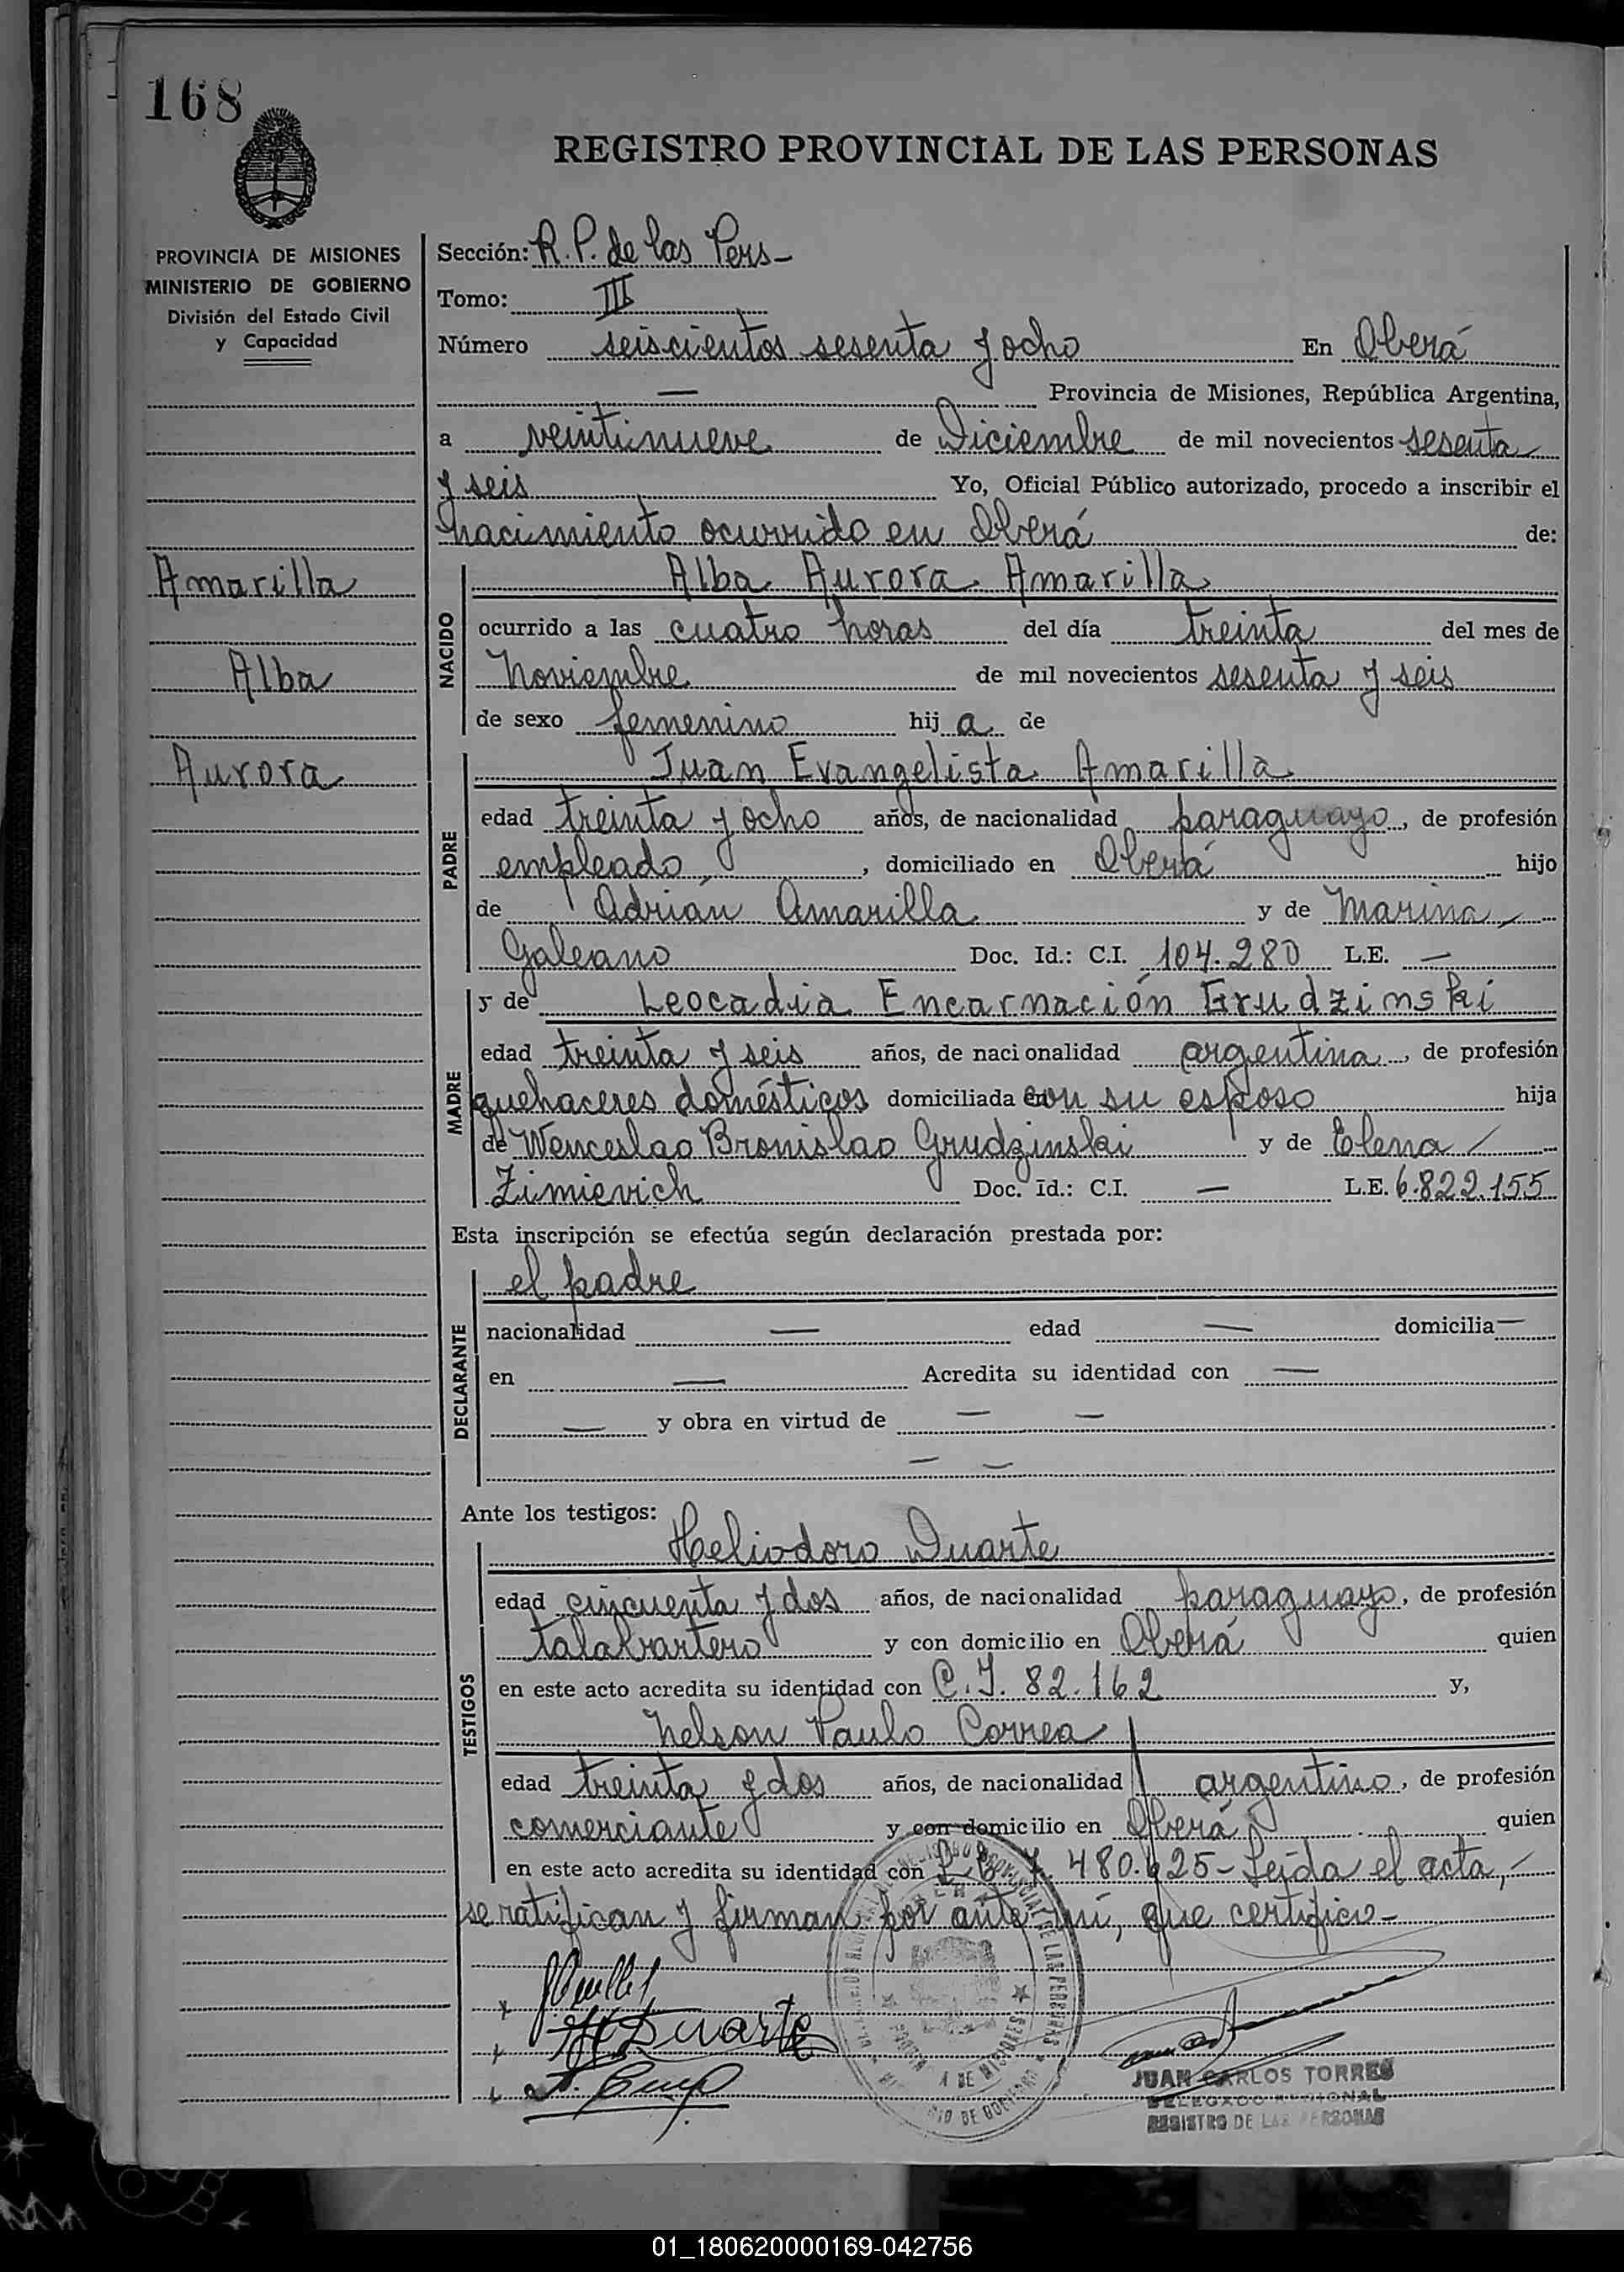 168
REGISTRO PROVINCIAL DE LAS PERSONAS
PROVINCIA DE MISIONES
MINISTERIO DE GOBIERNO
División del Estado Civil
y Capacidad
Sección: R. P. de las Pers -
Tomo: III
Número seiscientos sesenta y ocho En Oberá
— Provincia de Misiones, República Argentina,
a veintinueve de Diciembre de mil novecientos sesenta
y seis Yo, Oficial Público autorizado, procedo a inscribir el
nacimiento ocurrido en Oberá de:
Amarilla
Alba
Aurora
NACIDO
Alba Aurora Amarilla
ocurrido a las cuatro horas del día treinta del mes de
Noviembre de mil novecientos sesenta y seis
de sexo femenino hij a de
PADRE
Juan Evangelista Amarilla
edad treinta y ocho años, de nacionalidad paraguayo, de profesión
empleado, domiciliado en Oberá hijo
de Adrián Amarilla y de Marina
Galeano Doc. Id.: C.I. 104.280 L.E. —
MADRE
y de Leocadia Encarnación Grudzinski
edad treinta y seis años, de nacionalidad argentina, de profesión
quehaceres domésticos domiciliada en con su esposo hija
de Wenceslao Bronislao Grudzinski y de Elena
Zimievich Doc. Id.: C.I. — L.E. 6.822.155
Esta inscripción se efectúa según declaración prestada por:
DECLARANTE
el padre
nacionalidad — edad — domicilia —
en — Acredita su identidad con —
— y obra en virtud de — —
— —
Ante los testigos:
TESTIGOS
Heliodoro Duarte
edad cincuenta y dos años, de nacionalidad paraguayo, de profesión
talabartero y con domicilio en Oberá quien
en este acto acredita su identidad con C.I. 82.162 y,
Nelson Paulo Correa
edad treinta y dos años, de nacionalidad argentino, de profesión
comerciante y con domicilio en Oberá quien
en este acto acredita su identidad con 480.625 - Leída el acta, -
se ratifican y firman por ante mí, que certifico -
H Duarte
JUAN CARLOS TORRES
DELEGADO REGIONAL
REGISTRO DE LAS PERSONAS
01_180620000169-042756